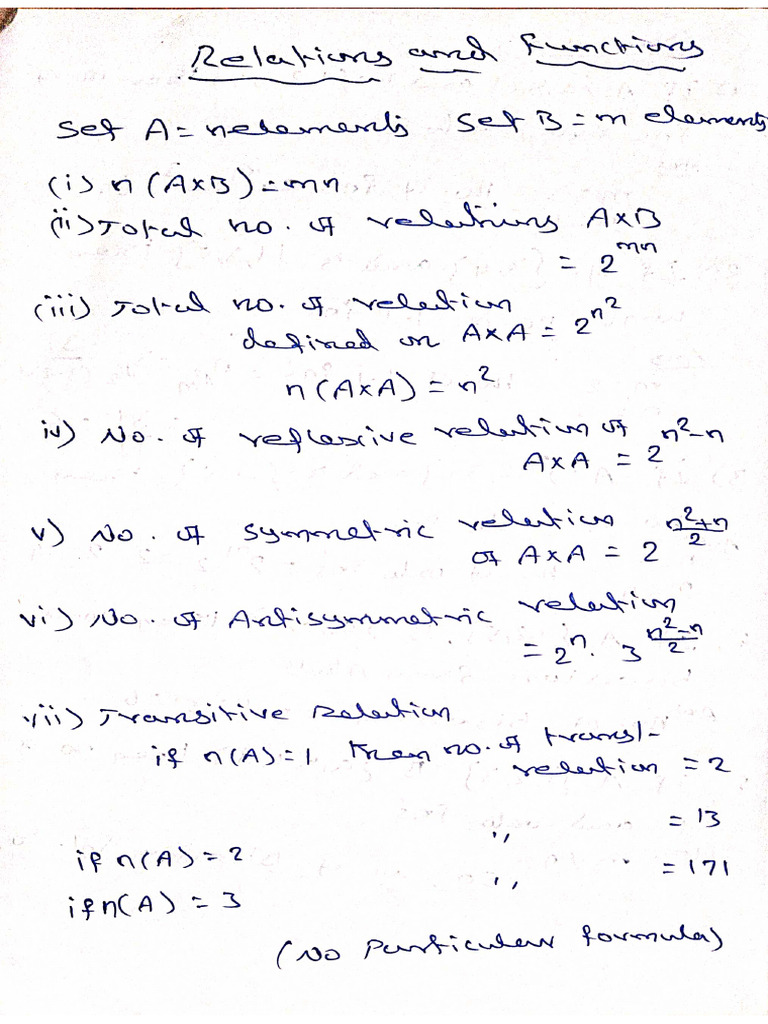 Relations and Functions
Set A = n elements Set B = m elements
(i) n (A×B) = mn
(ii) Total no. of relations A×B
= 2^{mn}
(iii) Total no. of relation
defined on A×A = 2^{n^2}
n (A×A) = n^2
iv) No. of reflexive relation of
A×A = 2^{n^2-n}
v) No. of symmetric relation
of A×A = 2^{\frac{n^2+n}{2}}
vi) No. of Antisymmetric relation
= 2^n. 3^{\frac{n^2-n}{2}}
vii) Transitive Relation
if n(A) = 1 then no. of trans/-
relation = 2
if n(A) = 2 ,, = 13
if n(A) = 3 ,, = 171
(No Particular formula)